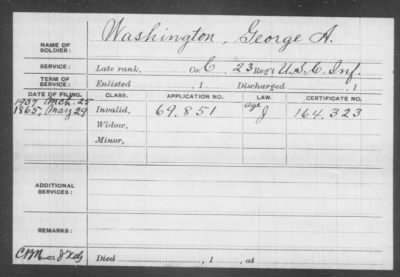 NAME OF SOLDIER: Washington, George A.
SERVICE: Late rank, Co. C, 23 Reg't U.S.C. Inf.
TERM OF SERVICE: Enlisted , 1 Discharged , 1
DATE OF FILING. CLASS. APPLICATION NO. LAW. CERTIFICATE NO.
1907 Mch. 25 Age
1865, May 29 Invalid, 69.851 J 164.323
Widow,
Minor,
ADDITIONAL SERVICES:
REMARKS:
Died , 1 , at